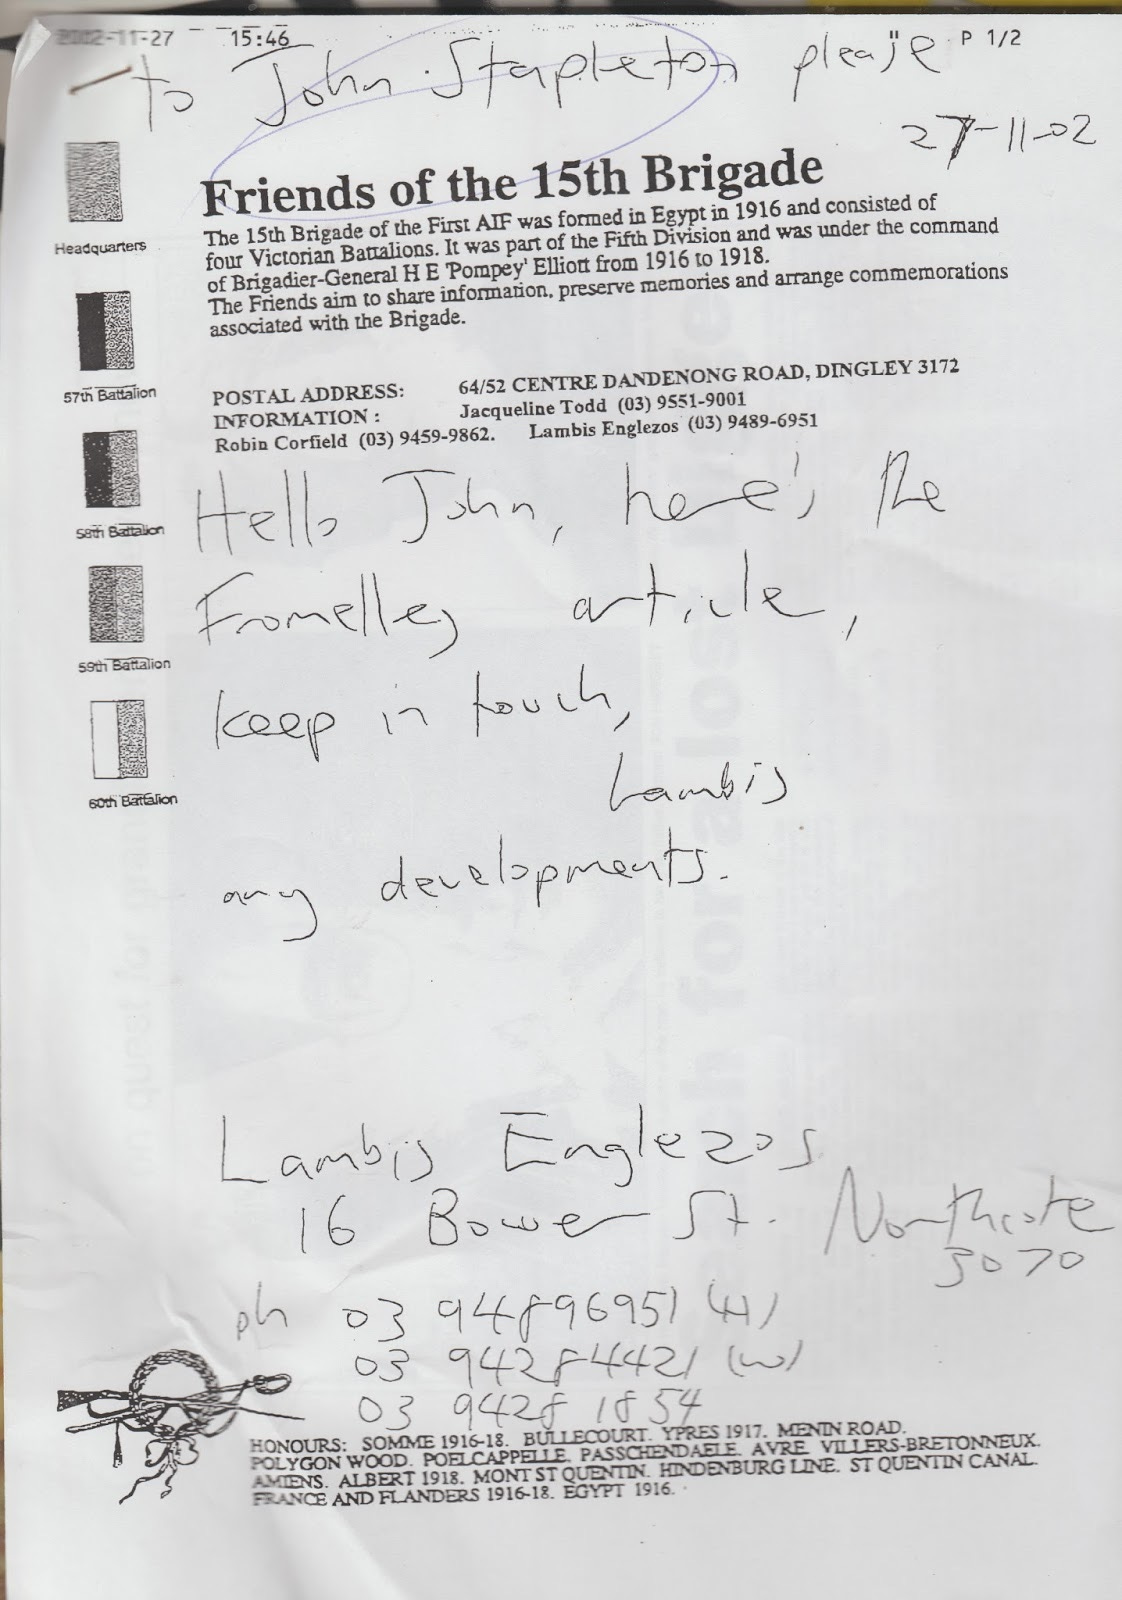 2002-11-27 15:46 P 1/2
to John Stapleton please
27-11-02
Friends of the 15th Brigade
The 15th Brigade of the First AIF was formed in Egypt in 1916 and consisted of
four Victorian Battalions. It was part of the Fifth Division and was under the command
of Brigadier-General H E 'Pompey' Elliott from 1916 to 1918.
The Friends aim to share information, preserve memories and arrange commemorations
associated with the Brigade.
Headquarters
57th Battalion
58th Battalion
59th Battalion
60th Battalion
POSTAL ADDRESS: 64/52 CENTRE DANDENONG ROAD, DINGLEY 3172
INFORMATION : Jacqueline Todd (03) 9551-9001
Robin Corfield (03) 9459-9862. Lambis Englezos (03) 9489-6951
Hello John, here's the
Fromelles article,
keep in touch,
Lambis
any developments.
Lambis Englezos
16 Bower St. Northcote
3070
ph 03 94896951 (H)
03 94284421 (W)
03 9428 1854
HONOURS: SOMME 1916-18. BULLECOURT. YPRES 1917. MENIN ROAD.
POLYGON WOOD. POELCAPPELLE. PASSCHENDAELE. AVRE. VILLERS-BRETONNEUX.
AMIENS. ALBERT 1918. MONT ST QUENTIN. HINDENBURG LINE. ST QUENTIN CANAL.
FRANCE AND FLANDERS 1916-18. EGYPT 1916.